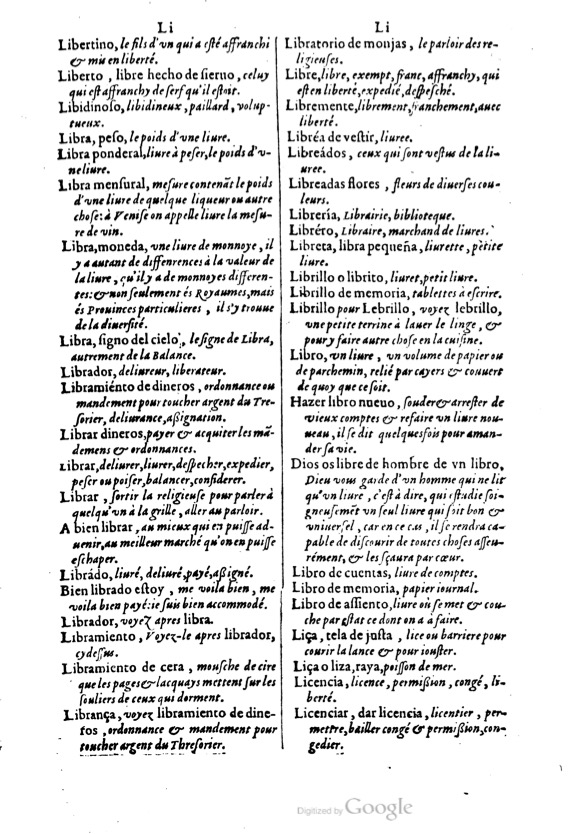 Li
Libertino, le fils d'vn qui a esté affranchi
& mis en liberté.
Liberto, libre hecho de sieruo, celuy
qui est affranchy de serf qu'il estoit.
Libidinoso, libidineux, paillard, volup-
tueux.
Libra, peso, le poids d'vne liure.
Libra ponderal, liure à peser, le poids d'v-
ne liure.
Libra mensural, mesure contenāt le poids
d'vne liure de quelque liqueur ou autre
chose: à Venise on appelle liure la mesu-
re de vin.
Libra, moneda, vne liure de monnoye, il
y a autant de differences à la valeur de
la liure, qu'il y a de monnoyes differen-
tes: & non seulement és Royaumes, mais
és Prouinces particulieres, il s'y trouue
de la diuersité.
Libra, signo del cielo, le signe de Libra,
autrement de la Balance.
Librador, deliureur, liberateur.
Libramiénto de dineros, ordonnance ou
mandement pour toucher argent du Tre-
sorier, deliurance, aßignation.
Librar dineros, payer & acquiter les mā-
demens & ordonnances.
Librar, deliurer, liurer, despecher, expedier,
peser ou poiser, balancer, considerer.
Librar, sortir la religieuse pour parler à
quelqu'vn à la grille, aller au parloir.
A bien librar, au mieux qui en puisse ad-
uenir, au meilleur marché qu'on en puisse
eschaper.
Librádo, liuré, deliuré, payé, aßigné.
Bien librado estoy, me voila bien, me
voila bien payé: ie suis bien accommodé.
Librador, voyez apres libra.
Libramiento, Voyez-le apres librador,
cy dessus.
Libramiento de cera, mousche de cire
que les pages & lacquays mettent sur les
souliers de ceux qui dorment.
Librança, voyez libramiento de dine-
ros, ordonnance & mandement pour
toucher argent du Thresorier.
Li
Libratorio de monjas, le parloir des re-
ligieuses.
Libre, libre, exempt, franc, affranchy, qui
est en liberté, expedié, despesché.
Libremente, librement, franchement, auec
liberté.
Libréa de vestir, liuree.
Libreádos, ceux qui sont vestus de la li-
uree.
Libreadas flores, fleurs de diuerses cou-
leurs.
Librería, Librairie, biblioteque.
Libréro, Libraire, marchand de liures.
Libreta, libra pequeña, liurette, petite
liure.
Librillo o librito, liuret, petit liure.
Librillo de memoria, tablettes à escrire.
Librillo pour Lebrillo, voyez lebrillo,
vne petite terrine à lauer le linge, &
pour y faire autre chose en la cuisine.
Libro, vn liure, vn volume de papier ou
de parchemin, relié par cayers & couuert
de quoy que ce soit.
Hazer libro nueuo, souder & arrester de
vieux comptes & refaire vn liure nou-
ueau, il se dit quelquesfois pour aman-
der sa vie.
Dios os libre de hombre de vn libro,
Dieu vous garde d'vn homme qui ne lit
qu'vn liure, c'est à dire, qui estudie soi-
gneusemēt vn seul liure qui soit bon &
vniuersel, car en ce cas, il se rendra ca-
pable de discourir de toutes choses asseu-
rément, & les sçaura par cœur.
Libro de cuentas, liure de comptes.
Libro de memoria, papier iournal.
Libro de assiento, liure où se met & cou-
che par estat ce dont on a à faire.
Liça, tela de justa, lice ou barriere pour
courir la lance & pour iouster.
Liça o liza, raya, poisson de mer.
Licencia, licence, permißion, congé, li-
berté.
Licenciar, dar licencia, licentier, per-
mettre, bailler congé & permißion, con-
gedier.
Digitized by Google